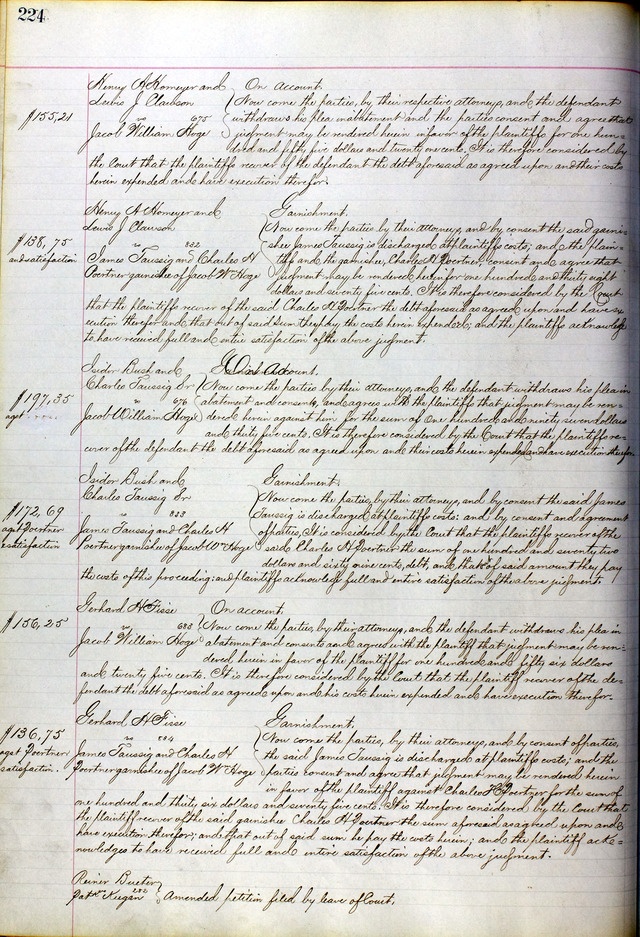 224
Henry A Homeyer and On account.
Lewis J Clawson Now come the parties, by their respective attorneys, and the defendant
$155,21 vs 675 withdraws his plea in abatement and the parties consent and agree that
Jacob William Hoge judgment may be rendered herein in favor of the plaintiffs for one hun-
dred and fifty five dollars and twenty one cents. It is therefore considered by
the Court that the plaintiffs recover of the defendant the debt aforesaid as agreed upon and their costs
herein expended and have execution therefor.
Henry A Homeyer and Garnishment.
Lewis J Clawson Now come the parties by their attorneys, and by consent the said garni-
$138,75 vs 832 shee James Taussig is discharged at plaintiffs costs; and the plain-
and satisfaction James Taussig and Charles H tiffs and the garnishee, Charles H Poertner, consent and agree that
Poertner garnishee of Jacob W Hoge judgment may be rendered herein for one hundred and thirty eight
dollars and seventy five cents. It is therefore considered by the Court
that the plaintiffs recover of the said Charles H Poertner the debt aforesaid as agreed upon and have ex
ecution therefor and that out of said sum they pay the costs herein expended; and the plaintiffs acknowledge
to have received full and entire satisfaction of the above judgment.
Isidor Bush and On Account.
Charles Taussig Sr Now come the parties by their attorneys, and the defendant withdraws his plea in
$197,35 vs 676 abatement and consents, and agrees with the plaintiffs that judgment may be ren-
agst Jacob William Hoge dered herein against him for the sum of One hundred and ninety seven dollars
and thirty five cents. It is therefore considered by the Court that the plaintiffs re-
cover of the defendant the debt aforesaid as agreed upon and their costs herein expended and have execution therefor
Isidor Bush and Garnishment.
Charles Taussig Sr Now come the parties, by their attorneys, and by consent the said James
$172,69 vs 833 Taussig is discharged at plaintiffs costs: and by consent and agreement
agst Poertner James Taussig and Charles H of parties, It is considered by the Court that the plaintiffs recover of the
satisfaction Poertner garnishee of Jacob W Hoge said Charles H Poertner the sum of one hundred and seventy two
dollars and sixty nine cents, debt, and that of said amount they pay
the costs of this proceeding; and plaintiffs acknowledge full and entire satisfaction of the above judgment.
Gerhard H Fisse On account.
$156,25 vs 683 Now come the parties, by their attorneys, and the defendant withdraws his plea in
Jacob William Hoge abatement and consents and agrees with the plaintiff that judgment may be ren-
dered herein in favor of the plaintiff for one hundred and fifty six dollars
and twenty five cents. It is therefore considered by the Court that the plaintiff recover of the de-
fendant the debt aforesaid as agreed upon and his costs herein expended and have execution therefor.
Gerhard H Fisse Garnishment,
$136,75 vs 834 Now come the parties, by their attorneys, and by consent of parties,
agst Poertner James Taussig and Charles H the said James Taussig is discharged at plaintiffs costs; and the
satisfaction. Poertner garnishee of Jacob W Hoge parties consent and agree that judgment may be rendered herein
in favor of the plaintiff against Charles H Poertner for the sum of
one hundred and thirty six dollars and seventy five cents. It is therefore considered by the Court that
the plaintiff recover of the said garnishee Charles H Poertner the sum aforesaid as agreed upon and
have execution therefor; and that out of said sum he pay the costs herein; and the plaintiff ack-
nowledges to have received full and entire satisfaction of the above judgment.
Reiner Bueter
282 Amended petition filed by leave of Court.
Patk Keegan